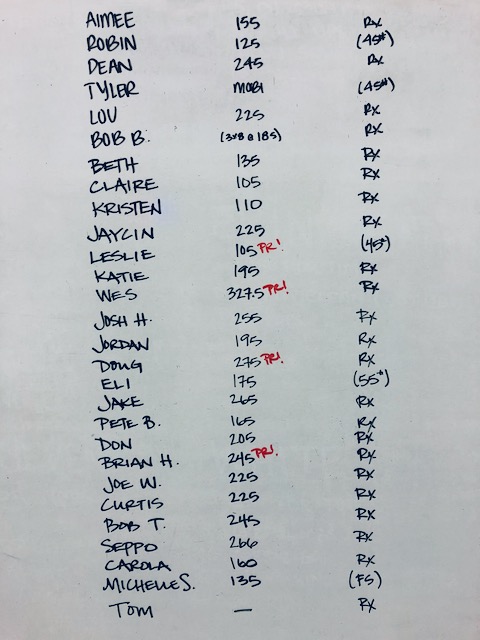 AIMEE 155 Rx
ROBIN 125 (45#)
DEAN 245 Rx
TYLER MOBI (45#)
LOU 225 Rx
BOB B. (3x8 @ 185) Rx
BETH 135 Rx
CLAIRE 105 Rx
KRISTEN 110 Rx
JAYCIN 225 Rx
LESLIE 105 PR! (45#)
KATIE 195 Rx
WES 327.5 PR! Rx
JOSH H. 255 Rx
JORDAN 195 Rx
DOUG 275 PR! Rx
ELI 175 (55#)
JAKE 265 Rx
PETE B. 165 Rx
DON 205 Rx
BRIAN H. 245 PR! Rx
JOE W. 225 Rx
CURTIS 225 Rx
BOB T. 245 Rx
SEPPO 266 Rx
CAROLA 160 Rx
MICHELLE S. 135 (FS)
TOM — Rx